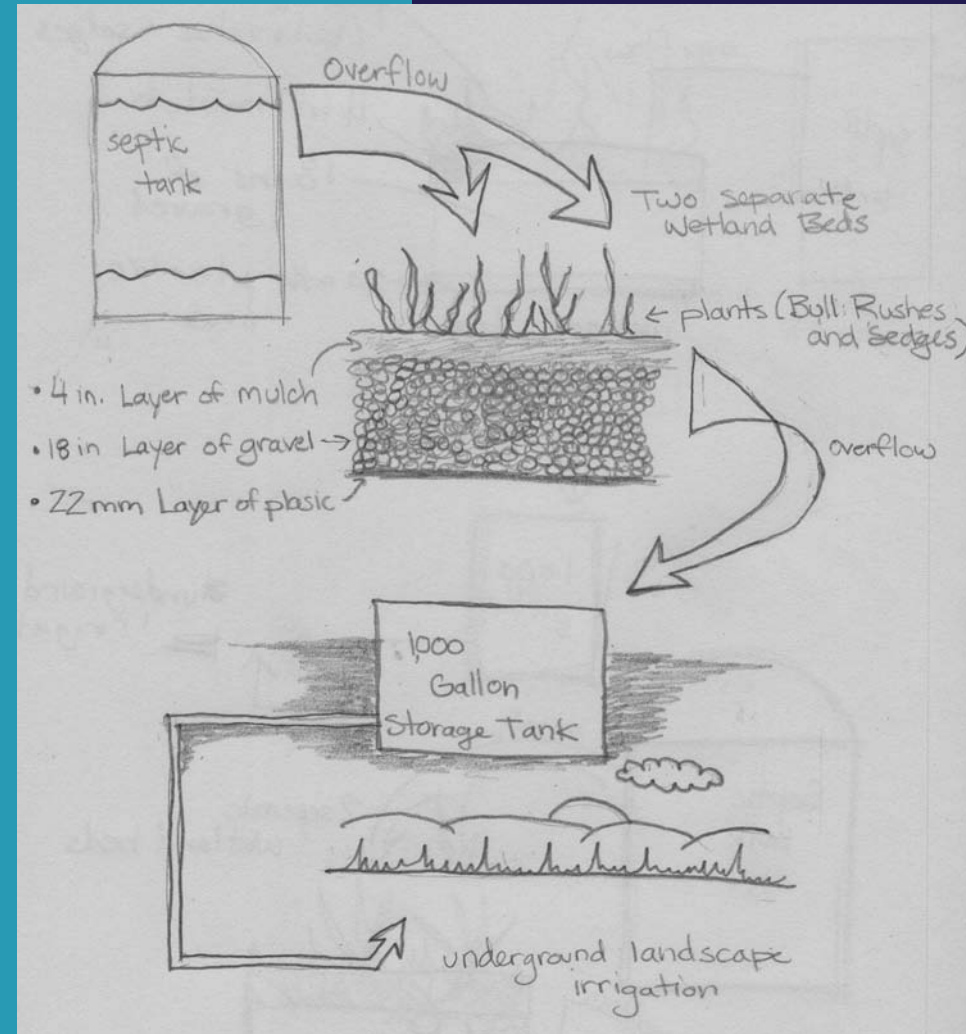 Overflow
septic
tank
Two separiate
Wetland Beds
← plants (Bull: Rushes
and Sedges)
• 4 in. Layer of mulch
• 18 in Layer of gravel →
• 22 mm Layer of plasic
overflow
1,000
Gallon
Storage Tank
underground landscape
irrigation